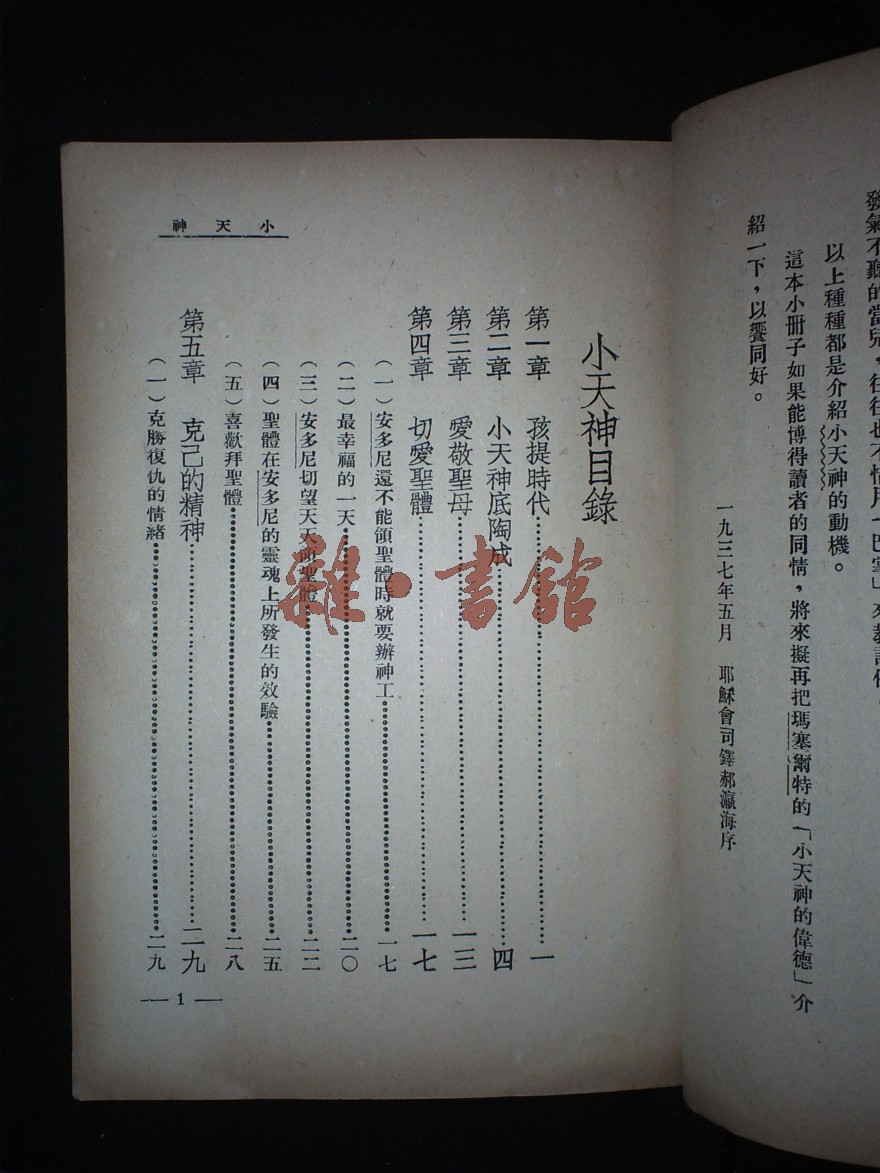 以上種種都是介紹小天神的動機。
這本小冊子如果能博得讀者的同情，將來擬再把瑪塞爾特的「小天神的偉德」介
紹一下，以饗同好。
一九三七年五月　耶穌會司鐸郝瀛海序
小天神
小天神目錄
第一章　孩提時代…………一
第二章　小天神底陶成…………四
第三章　愛敬聖母…………一三
第四章　切愛聖體…………一七
（一）安多尼還不能領聖體時就要辦神工…………一七
（二）最幸福的一天…………二〇
（三）安多尼切望天天領聖體…………二二
（四）聖體在安多尼的靈魂上所發生的效驗…………二五
（五）喜歡拜聖體…………二八
第五章　克己的精神…………二九
（一）克勝復仇的情緒…………二九
— 1 —
雜·書館